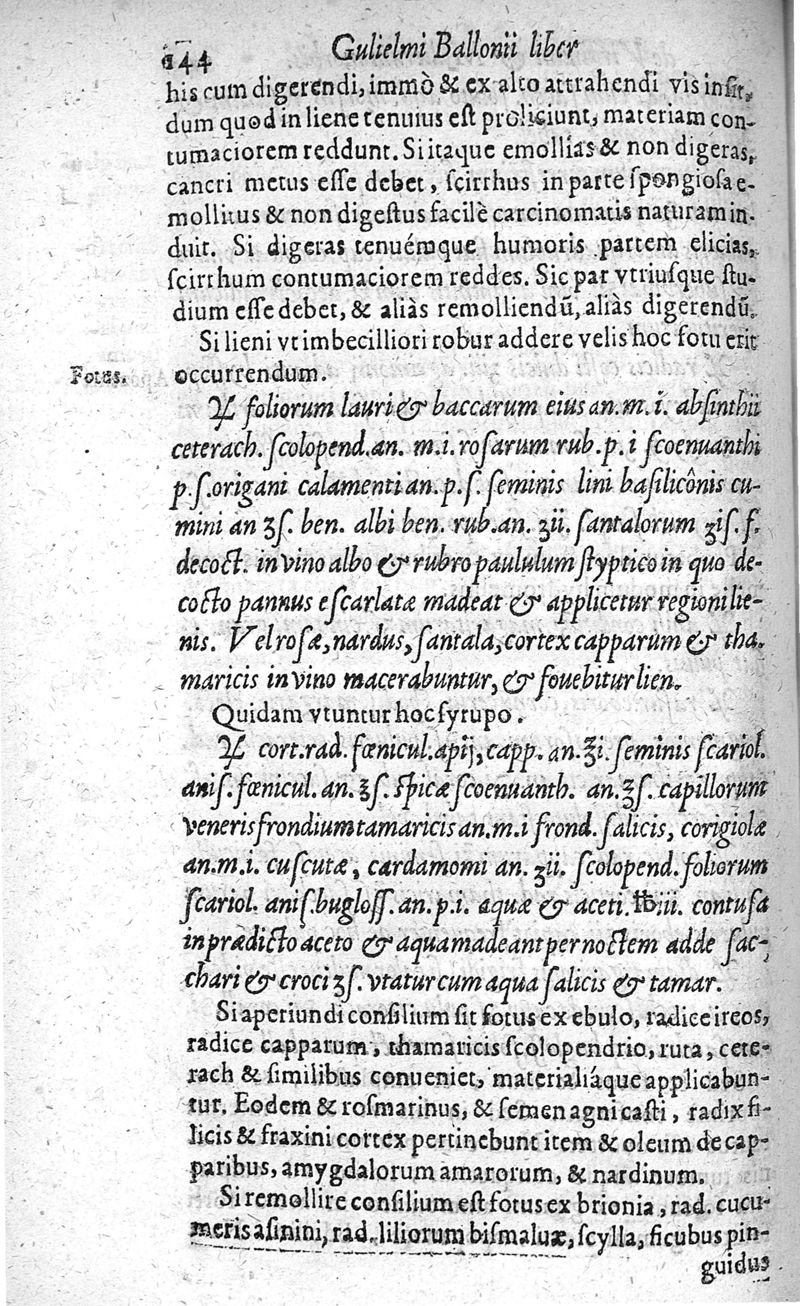 144 Gulielmi Ballonii liber
his cum digerendi, immò & ex alto attrahendi vis insit,
dum quod in liene tenuius est proliciunt, materiam con-
tumaciorem reddunt. Si itaque emollias & non digeras,
cancri metus esse debet, scirrhus in parte spongiosa e-
mollitus & non digestus facilè carcinomatis naturam in-
duit. Si digeras tenuémque humoris partem elicias,
scirrhum contumaciorem reddes. Sic par vtriusque stu-
dium esse debet, & aliàs remolliendū, aliàs digerendū.
Si lieni vt imbecilliori robur addere velis hoc fotu erit
Fotus. occurrendum.
♃ foliorum lauri & baccarum eius an. m. i. absinthii
ceterach. scolopend. an. m. i. rosarum rub. p. i scoenuanthi
p. s. origani calamenti an. p. s. seminis lini basilicônis cu-
mini an ʒs. ben. albi ben. rub. an. ʒii. santalorum ʒis. f.
decoct. in vino albo & rubro paululum styptico in quo de-
cocto pannus escarlatæ madeat & applicetur regioni lie-
nis. Vel rosæ, nardus, santala, cortex capparum & tha.
maricis in vino macerabuntur, & fouebitur lien.
Quidam vtuntur hoc syrupo.
♃ cort. rad. fœnicul. apij, capp. an. ℥i. seminis scariol.
anis. fœnicul. an. ℥s. spicæ scoenuanth. an. ℥s. capillorum
veneris frondium tamaricis an. m. i frond. salicis, corigiolæ
an. m. i. cuscutæ, cardamomi an. ʒii. scolopend. foliorum
scariol. anis. bugloss. an. p. i. aquæ & aceti. ℔ iii. contusa
in prædicto aceto & aqua madeant per noctem adde sac-
chari & croci ʒs. vtatur cum aqua salicis & tamar.
Si aperiundi consilium sit fotus ex ebulo, radice ireos,
radice capparum, thamaricis scolopendrio, ruta, cete-
rach & similibus conueniet, materialiáque applicabun-
tur. Eodem & rosmarinus, & semen agni casti, radix fi-
licis & fraxini cortex pertinebunt item & oleum de cap-
paribus, amygdalorum amarorum, & nardinum.
Si remollire consilium est fotus ex brionia, rad. cucu-
meris asinini, rad. liliorum bismaluæ, scylla, ficubus pin-
guidus